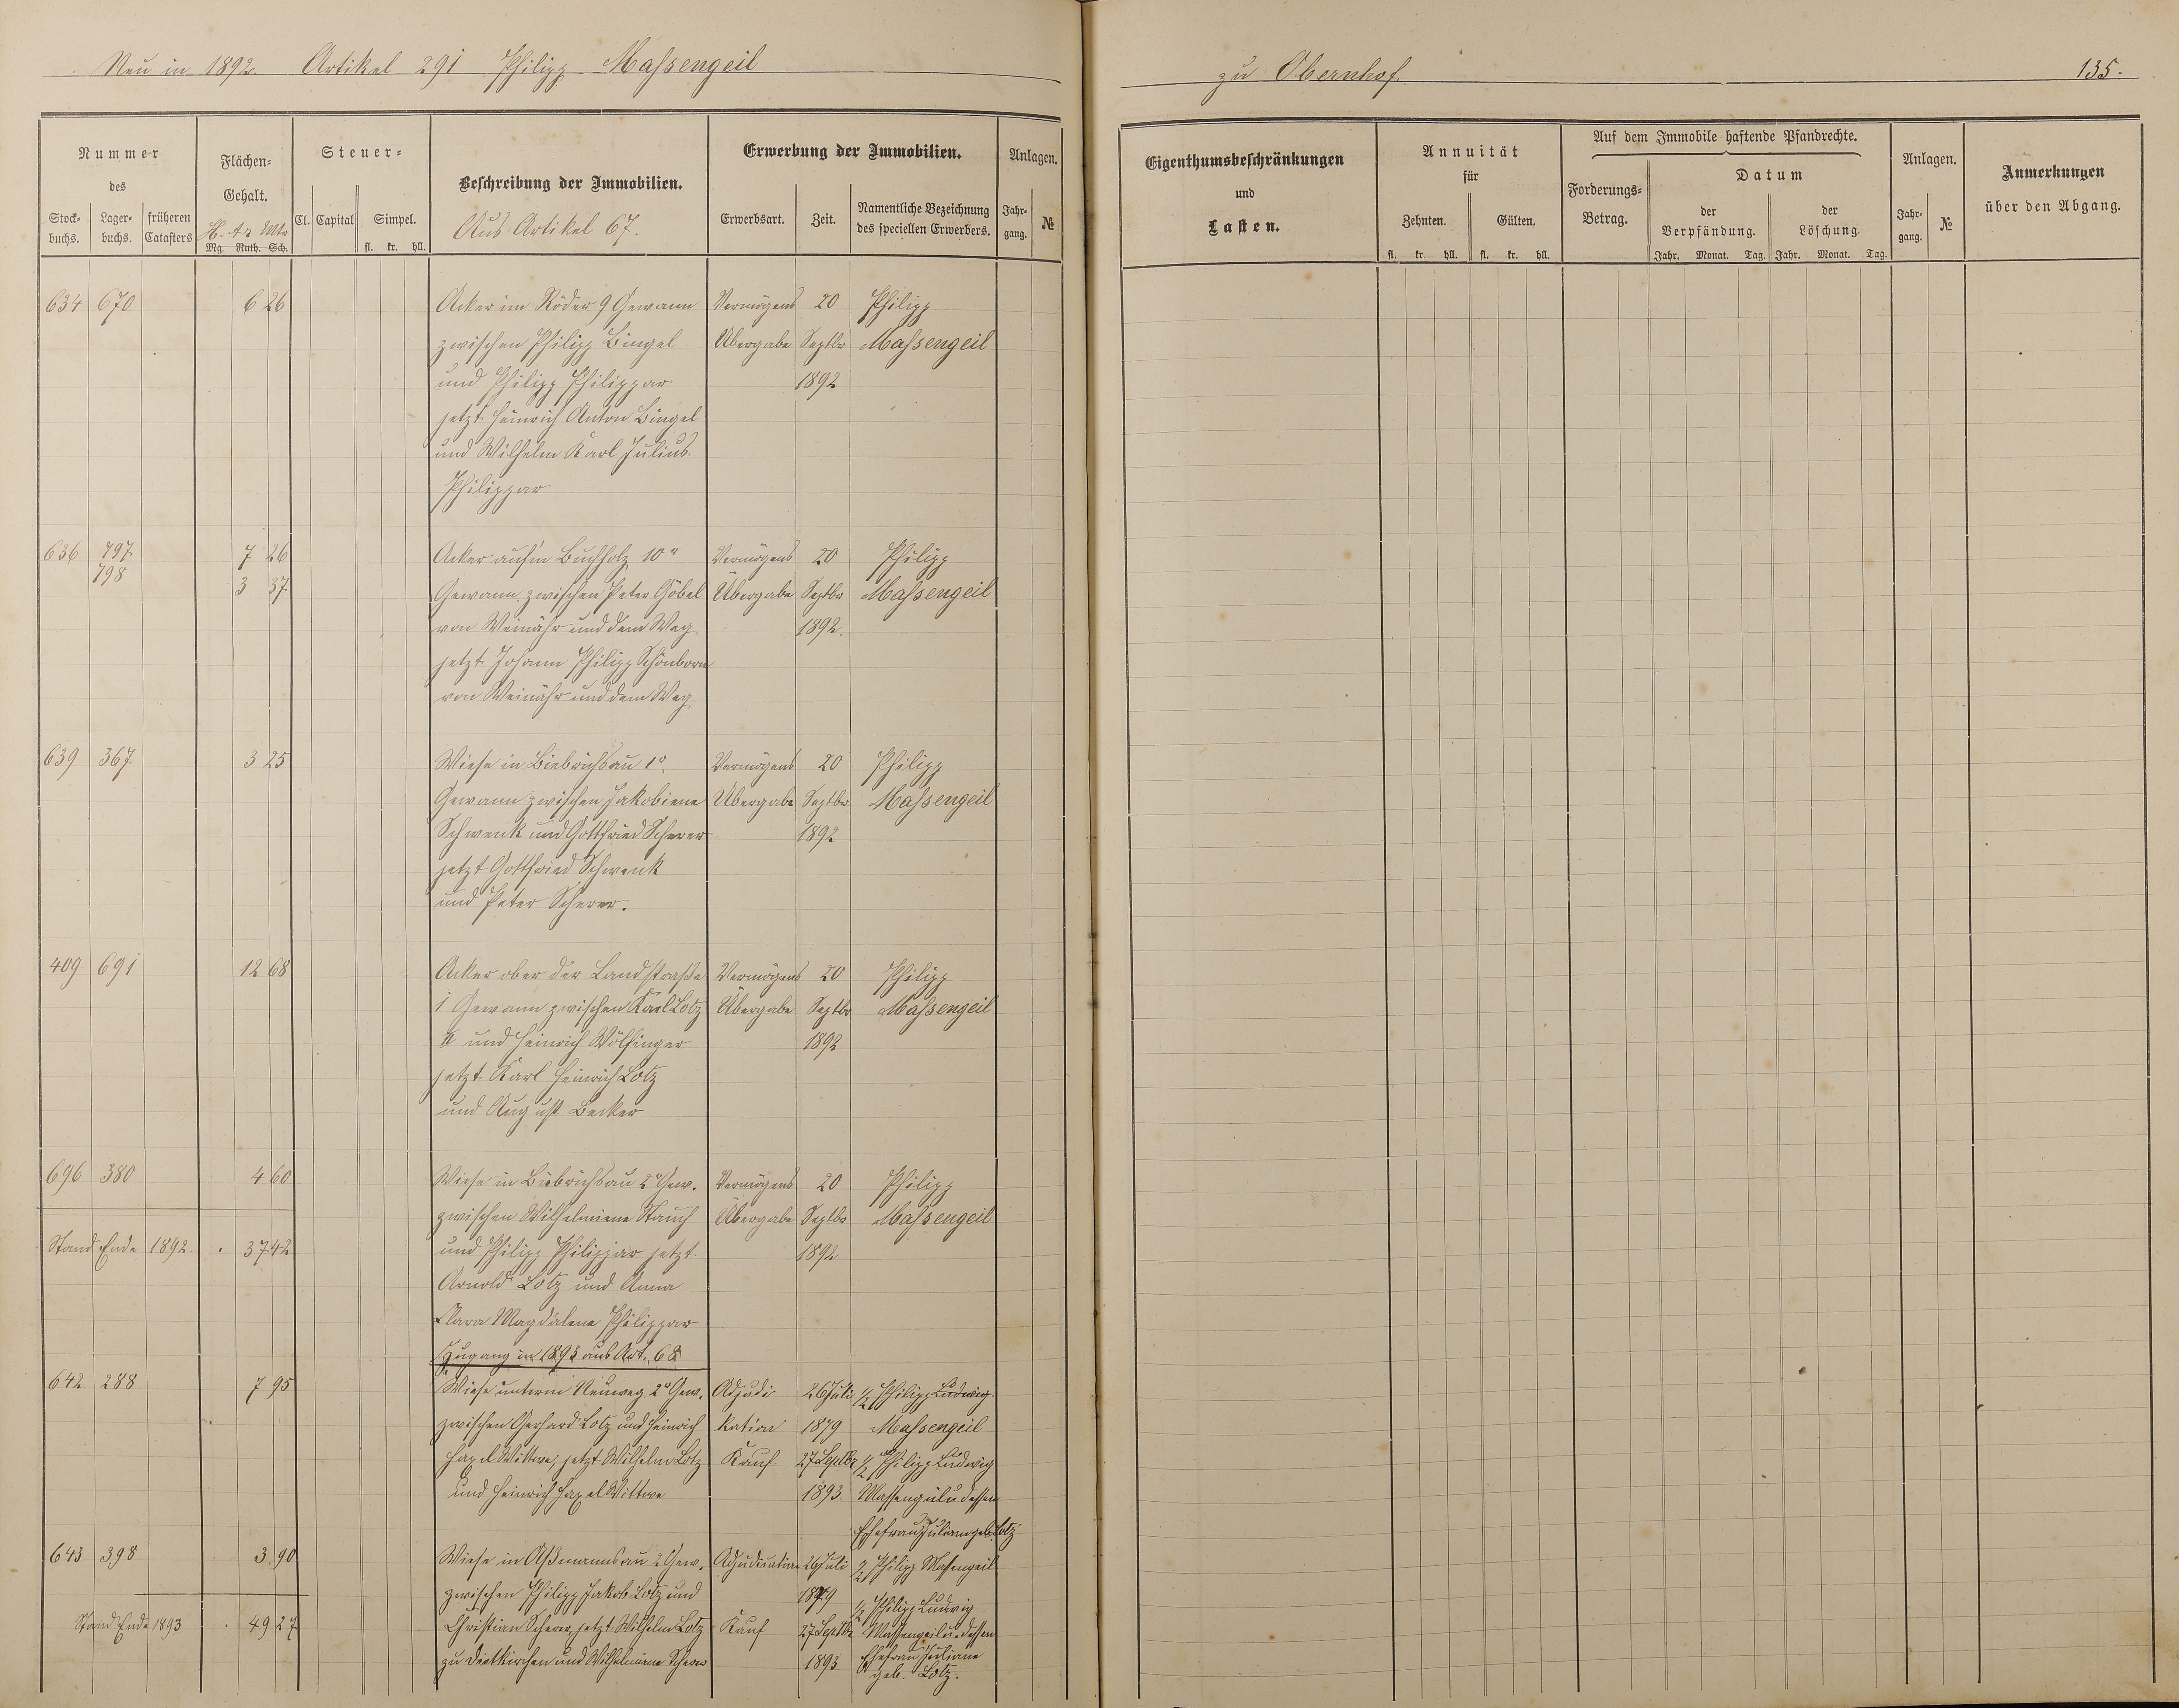 Neu in 1892. Artikel 291 Philipp Maſsengeil
zu Obernhof
135.
Nummer
des
Stock-
buchs.
Lager-
buchs.
früheren
Catasters
Flächen-
Gehalt.
H. Ar Mtr
Mg. Ruth. Sch.
Steuer-
Cl. Capital Simpel.
fl. kr. hll.
Beschreibung der Immobilien.
Aus Artikel 67.
Erwerbung der Immobilien.
Erwerbsart.
Zeit.
Namentliche Bezeichnung
des speciellen Erwerbers.
Anlagen.
Jahr-
gang.
№
Eigenthumsbeschränkungen
und
Lasten.
Annuität
für
Zehnten. Gülten.
fl. kr. hll. fl. kr. hll.
Auf dem Immobile haftende Pfandrechte.
Forderungs-
Betrag.
Datum
der
Verpfändung.
der
Löschung.
Jahr. Monat. Tag. Jahr. Monat. Tag.
Anlagen.
Jahr-
gang.
№
Anmerkungen
über den Abgang.
634 670 6 26 Acker im Röder 9 Gewann Vermögens 20 Philipp
zwischen Philipp Bingel Übergabe Septbr Maſsengeil
und Philipp Philippar 1892
jetzt Heinrich Anton Bingel
und Wilhelm Karl Julius
Philippar
636 797 7 26 Acker aufm Buchholz 10" Vermögens 20 Philipp
798 3 37 Gewann zwischen Peter Göbel Übergabe Septbr Maſsengeil
von Weinähr und dem Weg 1892.
jetzt Johann Philipp Schönborn
von Weinähr und dem Weg
639 367 3 25 Wiese in Biebrichsau 1r. Vermögens 20 Philipp
Gewann zwischen Jakobiene Übergabe Septbr Maſsengeil
Schwenk und Gottfried Scherer 1892
jetzt Gottfried Schwenk
und Peter Scherer.
409 691 12 68 Acker ober der Landstraße Vermögens 20 Philipp
1 Gewann zwischen Karl Lotz Übergabe Septbr Maſsengeil
II und Heinrich Wölfinger 1892
jetzt Karl Heinrich Lotz
und August Becker
696 380 4 60 Wiese in Biebrichsau 2" Gew. Vermögens 20 Philipp
zwischen Wilhelmiene Stauch Übergabe Septbr Maſsengeil
Stand Ende 1892. . 37 42 und Philipp Philippar jetzt 1892
Arnold Lotz und Anna
Clara Magdalene Philippar
Zugang in 1893 aus Art. 68
642 288 7 95 Wiese unterm Neuweg 2r Gew. Adjudi- 26 Juli 1/2 Philipp Ludwig
zwischen Gerhard Lotz und Heinrich kation 1879 Maſsengeil
Hazel Wittwe, jetzt Wilhelm Lotz Kauf 27 Septbr 1/2 Philipp Ludwig
und Heinrich Hazel Wittwe 1893. Massengeil u dessen
Ehefrau Julian geb. Lotz
643 398 3 90 Wiese in Aßmannsau 2 Gew. Adjudication 26 Juli 1/2 Philipp Massengeil
zwischen Philipp Jakob Lotz und 1879 1/2 Philipp Ludwig
Stand Ende 1893 . 49 27 Christian Scherer, jetzt Wilhelm Lotz Kauf 27 Septbr Massengeil u. dessen
zu Dietkirchen und Wilhelmiene Scherer 1893 Ehefrau Juliane
geb. Lotz.